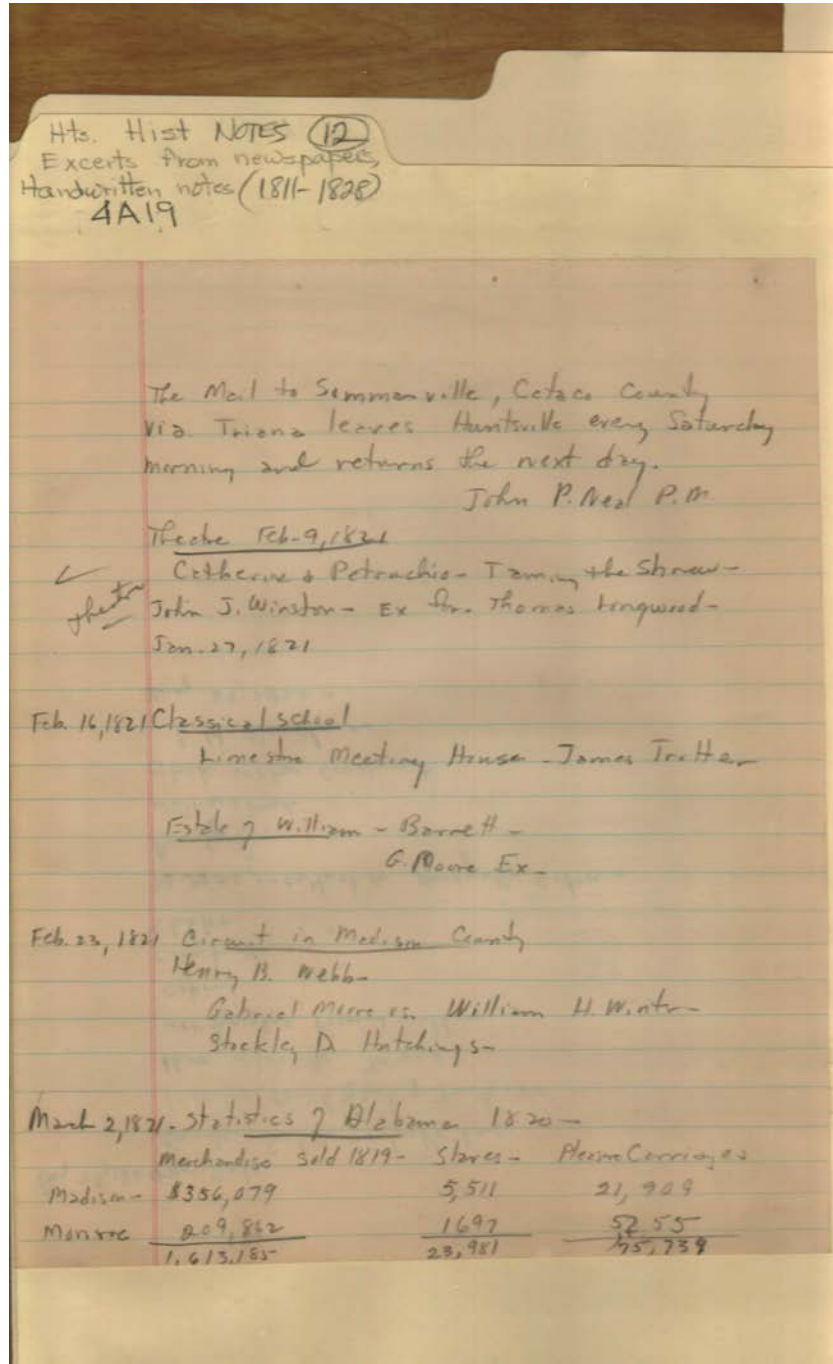 Hts. Hist NOTES (12)
Excerts from newspapers,
Handwritten notes (1811-1828)
4A19
The Mail to Sommerville, Cotaco County
via. Triana leaves Huntsville every Saturday
morning and returns the next day.
John P. Neal P.M
Theatre Feb-9, 1821
Catherine & Petruchio - Taming the Shrew -
theater
John J. Winston - Ex for. Thomas -
Jan. 27, 1821
Feb. 16, 1821 Classical School
Limestone Meeting House - James Trotter
Estate of William - Barnett -
G. Moore Ex -
Feb. 23, 1821 Circuit in Madison County
Henry B. Webb -
Gabriel Moore vs. William H. Winter -
Stockley D. Hutchings -
March 2, 1821 - Statistics of Alabama 1820 -
Merchandise sold 1819 - Slaves - Carriages
Madison - $356,079 5,511 21,909
Monroe 209,862 1697 5255
1,613,185 23,981 75,739